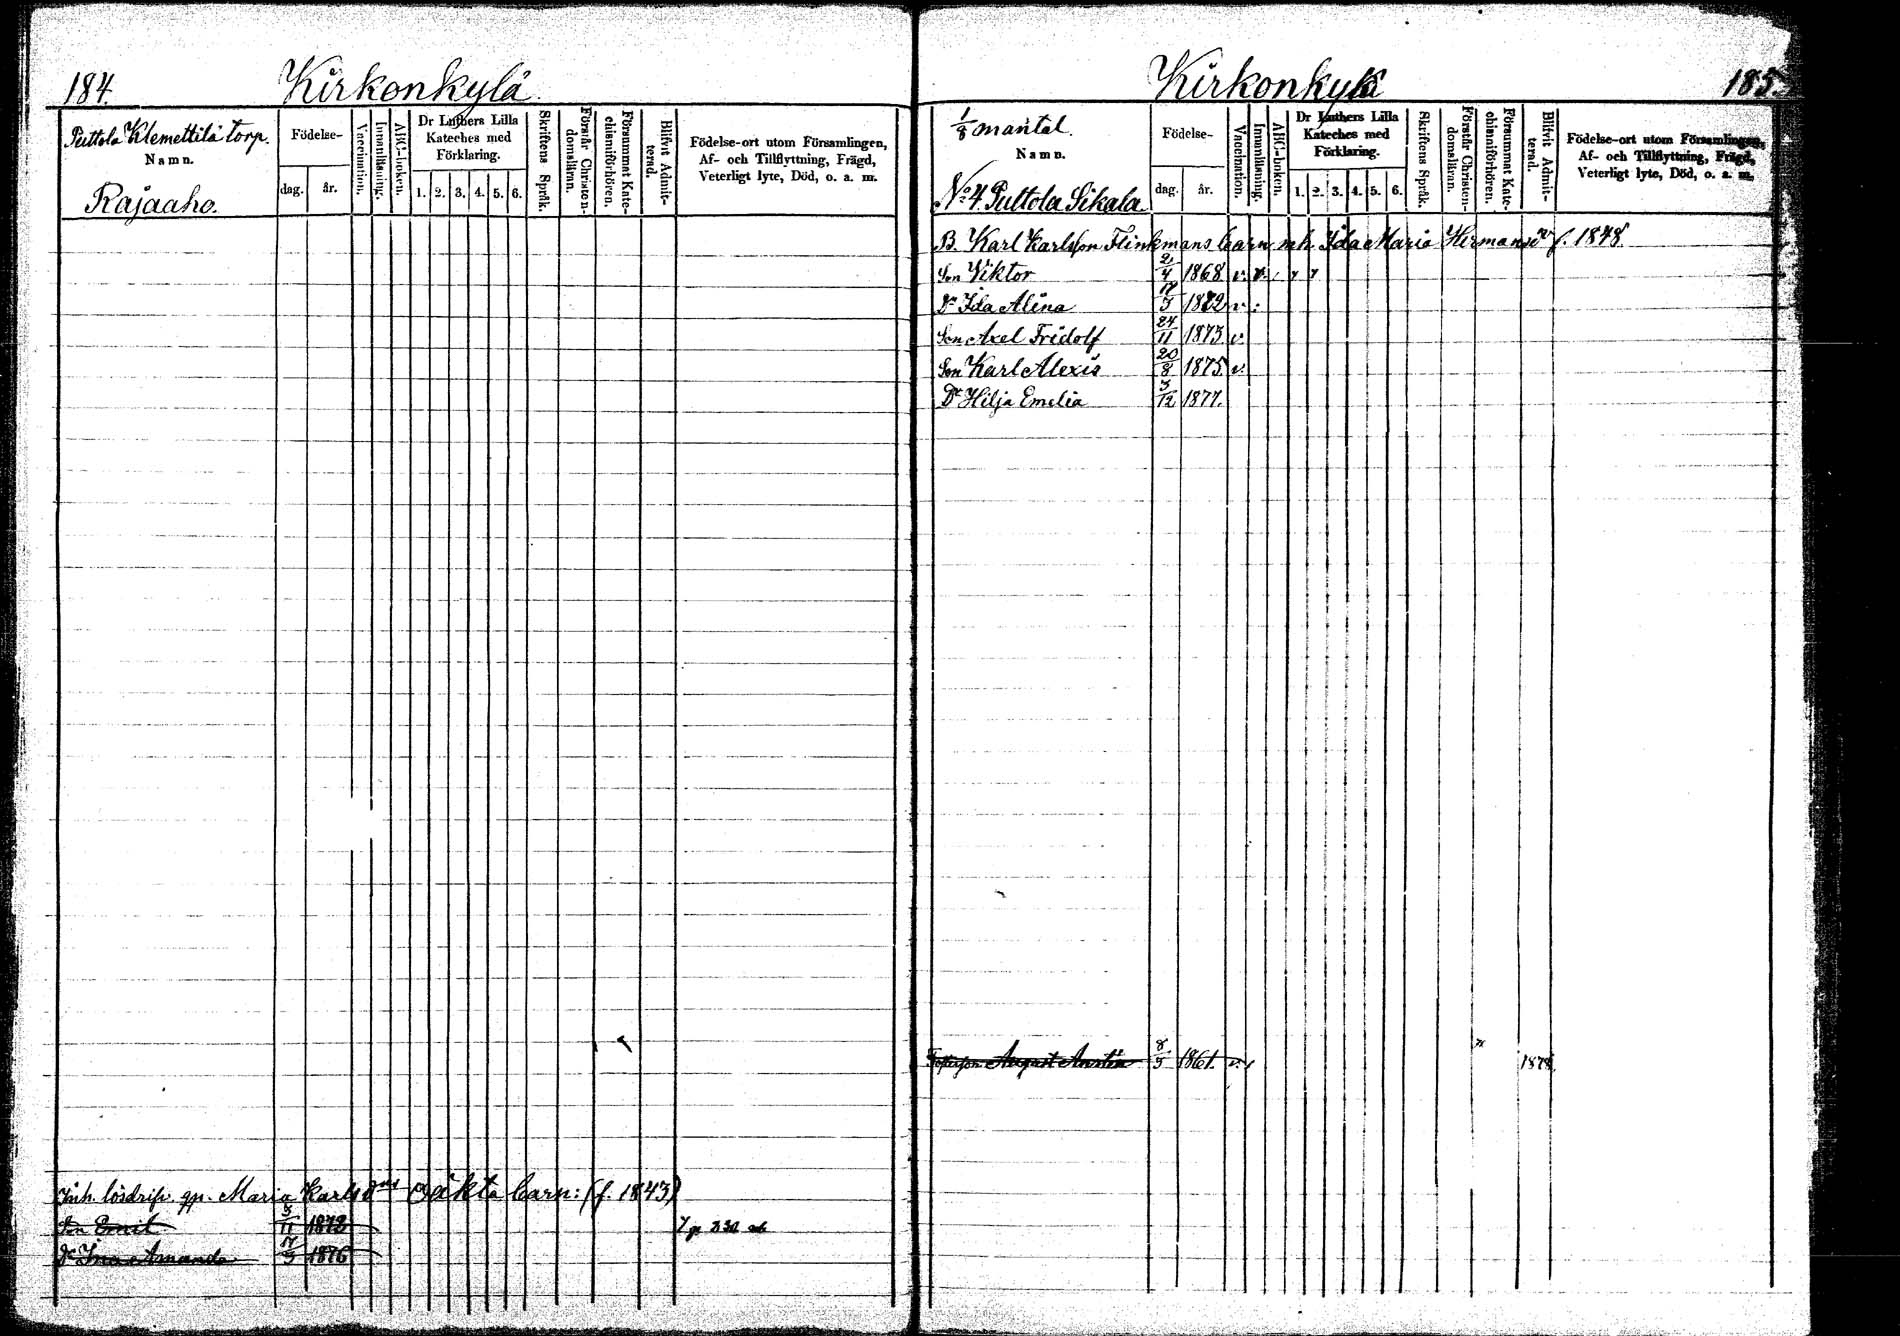 184.
Kirkonkylä
Puttola Klemettilä torp.
Namn.
Rajaaho.
Födelse-
dag. år.
Vaccination.
Innanläsning.
ABC-boken.
Dr Luthers Lilla
Kateches med
Förklaring.
1. 2. 3. 4. 5. 6.
Skriftens Språk.
Förstår Christen-
domsläran.
Försummat Kate-
chismiförhören.
Blifvit Admit-
terad.
Födelse-ort utom Församlingen,
Af- och Tillflyttning, Frägd,
Veterligt lyte, Död, o. a. m.
Inh. lösdrifv. qp. Maria Karlsdrs oäkta barn: (f. 1843)
Son Emil 8/11 1873
Dr Ina Amanda 17/5 1876
Kirkonkylä
185.
1/8 mantal.
Namn.
No 4 Puttola Sikala
Födelse-
dag. år.
Vaccination.
Innanläsning.
ABC-boken.
Dr Luthers Lilla
Kateches med
Förklaring.
1. 2. 3. 4. 5. 6.
Skriftens Språk.
Förstår Christen-
domsläran.
Försummat Kate-
chismiförhören.
Blifvit Admit-
terad.
Födelse-ort utom Församlingen,
Af- och Tillflyttning, Frägd,
Veterligt lyte, Död, o. a. m.
B. Karl Karlsson Flinkmans barn mh. Ida Maria Hermansdr f. 1848.
Son Viktor 2/4 1868 v.
Dr Ida Alina 17/5 1872 v.
Son Axel Fridolf 24/11 1873 v.
Son Karl Alexis 20/8 1875 v.
Dr Hilja Emelia 3/12 1877.
August 8/5 1861. v. 1878.